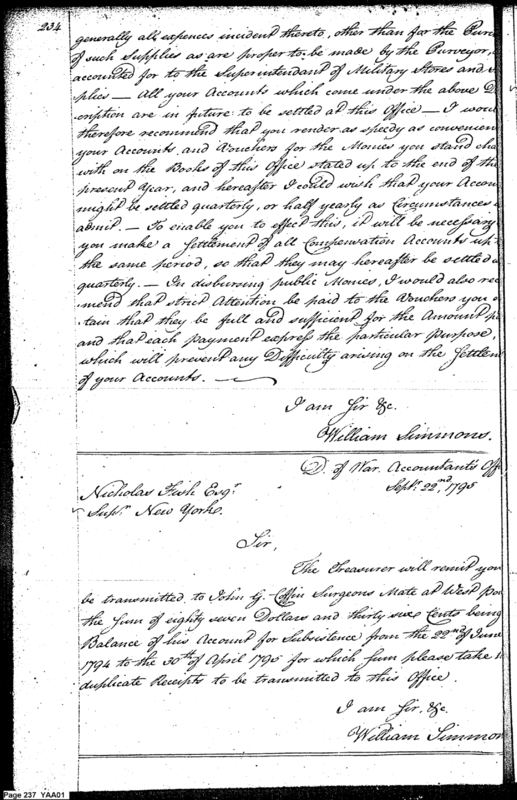 234
generally all expences incident thereto, other than for the Purc
of such Supplies as are proper to be made by the Purveyor,
accounted for to the Superintendant of Military Stores and S
plies — All your Accounts which come under the above D
cription are in future to be settled at this Office — I woul
therefore recommend that you render as speedy as convenien
your Accounts, and Vouchers for the Monies you stand cha
with on the Books of this Office stated up to the end of the
present Year, and hereafter I could wish that your Accoun
might be settled quarterly, or half yearly as Circumstances
admit. — To enable you to effect this, it will be necessary
you make a Settlement of all Compensation Accounts up
the same period, so that they may hereafter be settled
quarterly. — In disbursing public Monies, I would also rec
mend that strict Attention be paid to the Vouchers you o
tain that they be full and sufficient for the Amount p
and that each payment express the particular purpose,
which will prevent any Difficulty arising on the Settlem
of your Accounts. —
I am Sir &c.
William Simmons.
D. of War. Accountant's Off
Sept. 22,nd 1795
Nicholas Fish Esqr
Supr. New Yorke.
Sir,
The Treasurer will remit you
be transmitted to John G. Coffin Surgeons Mate at West Poi
the Sum of eighty seven Dollars and thirty six Cents being
Balance of his Account for Subsistence from the 22nd of June
1794 to the 30th of April 1795 for which sum please take
duplicate Receipts to be transmitted to this Office.
I am Sir, &c.
William Simmon
Page 237 YAA01